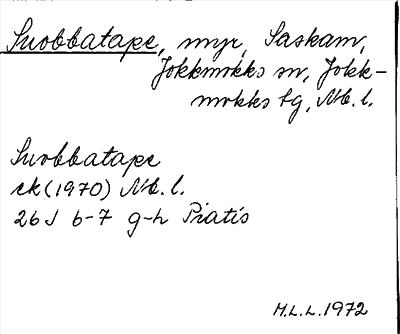 Suobbatape, myr, Saskam,
Jokkmokks sn, Jokk-
mokks tg, Nb. l.
Suobbatape
ek (1970) Nb. l.
26 J 6-7 g-h Piatis
M.L.L. 1972